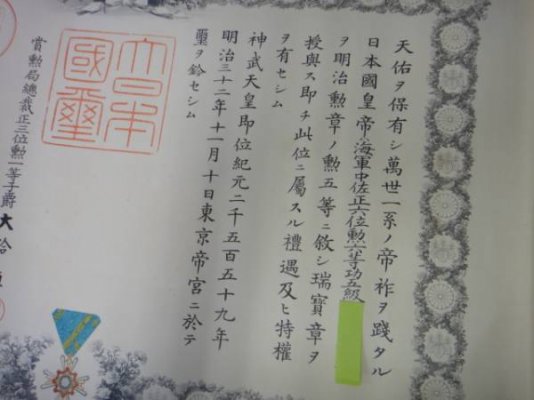 天佑ヲ保有シ萬世一系ノ帝祚ヲ踐タル
日本國皇帝ハ海軍中佐正六位勲六等功五級
ヲ明治勲章ノ勲五等ニ敘シ瑞寶章ヲ
授與ス即チ此位ニ屬スル禮遇及ヒ特權
ヲ有セシム
神武天皇即位紀元二千五百五十九年
明治三十二年十一月十日東京帝宮ニ於テ
璽ヲ鈐セシム
大日本國璽
賞勲局總裁正三位勲一等子爵大給恒